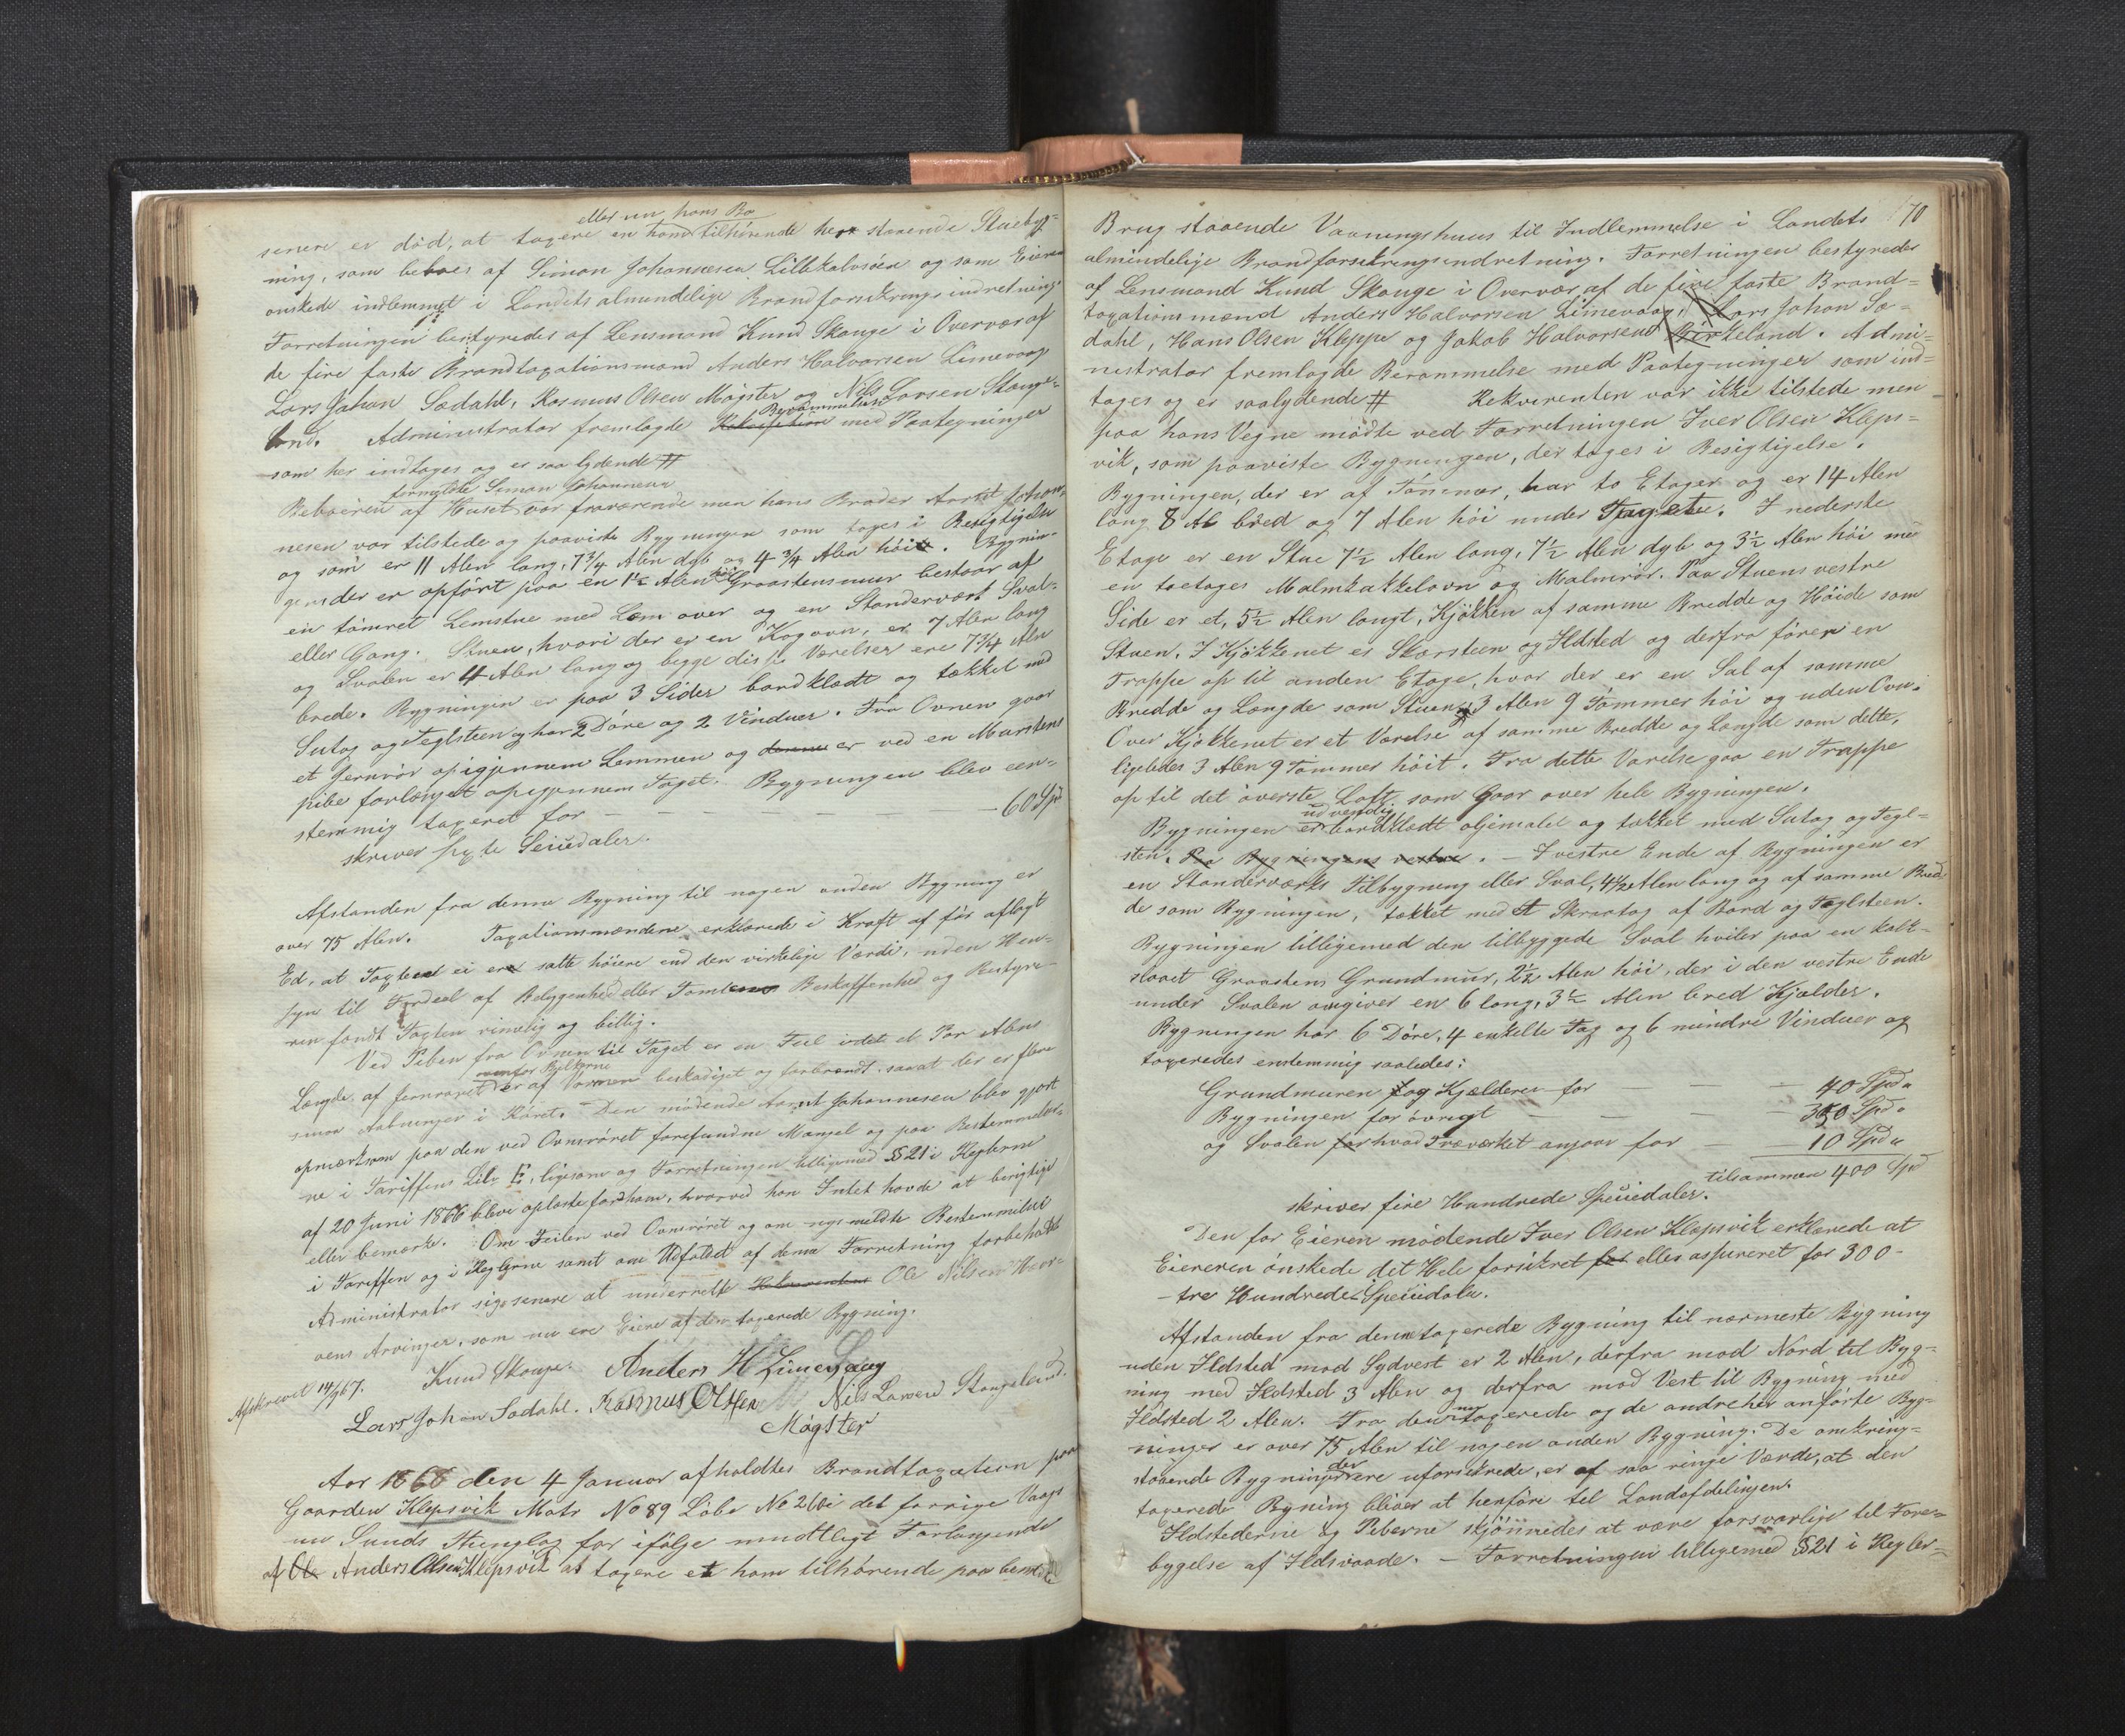 eller nu hans Bo
senere er död, at taxere en ham tilhörende her staaende Stuebyg-
ning, som beboes af Simon Johannesen Lillekalvsöen og som Eieren
önskede indlemmet i Landets almindelige Brandforsikringsindretning.
Forretningen bestyredes af Lensmand Knud Skauge i Overvær af
de fire faste Brandtaxationsmænd Anders Halvorsen Limevaag
Lars Johan Sædahl, Rasmus Olsen Mögster og Nils Larsen Stange-
land. Administrator fremlagde Berammelse med Paategninger
som her indtages og er saa lydende #
fornævnte Simon Johannesen
Beboeren af Huset var fraværende men hans Broder Arnt Johan-
nesen var tilstede og paaviste Bygningen som toges i Besigtigelse
og som er 11 Alen lang, 7 3/4 Alen dyb og 4 3/4 Alen höi. Bygnin-
gen der er opfört paa en 1 1/2 Alen höi Graastensmuur bestaar af
en tömret Lemstue med Lem over og en Standerværk Sval-
eller Gang. Stuen, hvori der er en Kogovn, er 7 Alen lang
og Svalen er 4 Alen lang og begge disse Værelser ere 7 3/4 Alen
brede. Bygningen er paa 3 Sider bordklædt og tækket med
Sutag og Teglsteen og har 2 Döre og 2 Vinduer. Fra Ovnen gaar
et Jernrör op igjennem Lemmen og denne er ved en Murstens
pibe forlænget op igjennem Taget. Bygningen blev een-
stemmig taxeret for — — — — — 60 Spd
skriver sexti Speciedaler.
Afstanden fra denne Bygning til nogen anden Bygning er
over 75 Alen. Taxationsmændene erklærede i Kraft af för aflagt
Ed, at Taxten ei er satte höiere end den virkelige Værdi, uden Hen-
syn til Fordeel af Belyggenhed eller Tomtens Beskaffenhed og Bestyre-
ren fandt Taxten rimelig og billig.
Ved Piben fra Ovnen til Taget er en Feil idet et Par Alens
nænfor Bjelkerne
Længde af Jernröret der af Varmen beskadiget og forbrændt, saaat der er flere
smaa Aabninger i Röret. Den mödende Arnt Johannesen blev gjort
opmærksom paa den ved Ovnsröret forefundne Mangel og paa Bestemmelser-
ne i Tariffens Litr E, ligesom og Forretningen tilligemed § 21 i Reglerne
af 20 Juni 1866 bleve oplæste for ham, hvorved han Intet havde at berigtige
eller bemærke. Om Feilen ved Ovnsröret og om nysmeldte Bestemmelser
i Tariffen og i Reglerne samt om Udfaldet af denne Forretning forbeholdt
Administrator sig senere at underrette Rekvirenten Ole Nilsen
vens Arvinger, som nu ere Eiere af den taxerede Bygning.
Afskrevet 14/1 67. Knud Skauge. Anders H Limevaag
Lars Johan Sædahl. Rasmus Olsen Nils Larsen Stangeland.
Mögster
Aar 1868 den 4 Januar afholdtes Brandtaxation paa
Gaarden Klepsvik Matr No 89 Löbe No 210 i det forrige Vaags
nu Sunds Thinglag for ifölge mundtligt Forlangende
af Ole Anders Olsen Klepsvik at taxere et ham tilhörende paa bemeldte
70
Brug staaende Vaaningshuus til Indlemmelse i Landets
almindelige Brandforsikringsindretning. Forretningen bestyredes
af Lensmand Knud Skauge i Overvær af de fire faste Brand-
taxationsmænd Anders Halvorsen Limevaag, Lars Johan Sæ-
dahl, Hans Olsen Kleppe og Jakob Halvorsen Birkeland. Admi-
nistrator fremlagde Berammelse med Paategninger som ind-
tages og er saalydende # Rekvirenten var ikke tilstede men
paa hans Vegne mödte ved Forretningen Iver Olsen Kleps-
vik, som paaviste Bygningen, der toges i Besigtigelse.
Bygningen, der er af Tömmer, har to Etager og er 14 Alen
lang 8 Al bred og 7 Alen höi under Taget. I nederste
Etage er en Stue 7 1/2 Alen lang, 7 1/2 Alen dyb og 3 1/2 Alen höi med
en toetages Malmkakkelovn og Malmrör. Paa Stuens vestre
Side er et, 5 1/2 Alen langt, Kjökken af samme Bredde og Höide som
Stuen. I Kjökkenet er Skorsteen og Ildsted og derfra förer en
Trappe op til anden Etage, hvor der er en Sal af samme
Bredde og Længde som Stuen, 3 Alen 9 Tommer höi og uden Ovn.
Over Kjökkenet er et Værelse af samme Bredde og Længde som dette,
ligeledes 3 Alen 9 Tommer höit. Fra dette Værelse gaa en Trappe
op til det överste Loft som gaar over hele Bygningen.
udvendig
Bygningen er bordklædt oljemalet og tækket med Sutag og Tegl-
sten. Paa Bygningens vestre. – I vestre Ende af Bygningen er
en Standerværks Tilbygning eller Sval, 4 1/2 Alen lang og af samme Bred-
de som Bygningen, tækket med et Skraatag af Bord og Teglsteen.
Bygningen tilligemed den tilbyggede Sval hviler paa en kalk-
slaaet Graastens Grundmur, 2 1/2 Alen höi, der i den vestre Ende
under Svalen omgiver en 6 lang, 3 1/2 Alen bred Kjælder.
Bygningen har 6 Döre, 4 enkelte Fag og 6 mindre Vinduer og
taxeredes enstemmig saaledes:
Grundmuren og Kjælderen for — — 40 Spd
Bygningen for övrigt — — — 350 Spd
og Svalen for hvad Træværket angaar for — 10 Spd
tilsammen 400 Spd
skriver fire Hundrede Speciedaler.
Den for Eieren mödende Iver Olsen Klepsvik erklærede at
Eiereren önskede det Hele forsikret for eller assureret for 300 –
– tre Hundrede Speciedaler.
Afstanden fra denne taxerede Bygning til nærmeste Bygning
uden Ildsted mod Sydvest er 2 Alen, derfra mod Nord til Byg-
ning med Ildsted 3 Alen og derfra mod Vest til Bygning med
Ildsted 2 Alen. Fra den nu taxerede og de andre her anförte Byg-
ninger er over 75 Alen til nogen anden Bygning. De omkring-
staaende Bygninger der ere uforsikrede, er af saa ringe Værde, at den
taxerede Bygning bliver at henföre til Landafdelingen.
Ildstederne og Piberne skjönnedes at være forsvarlige til Fore-
byggelse af Ildsvaade. – Forretningen tilligemed § 21 i Regler-